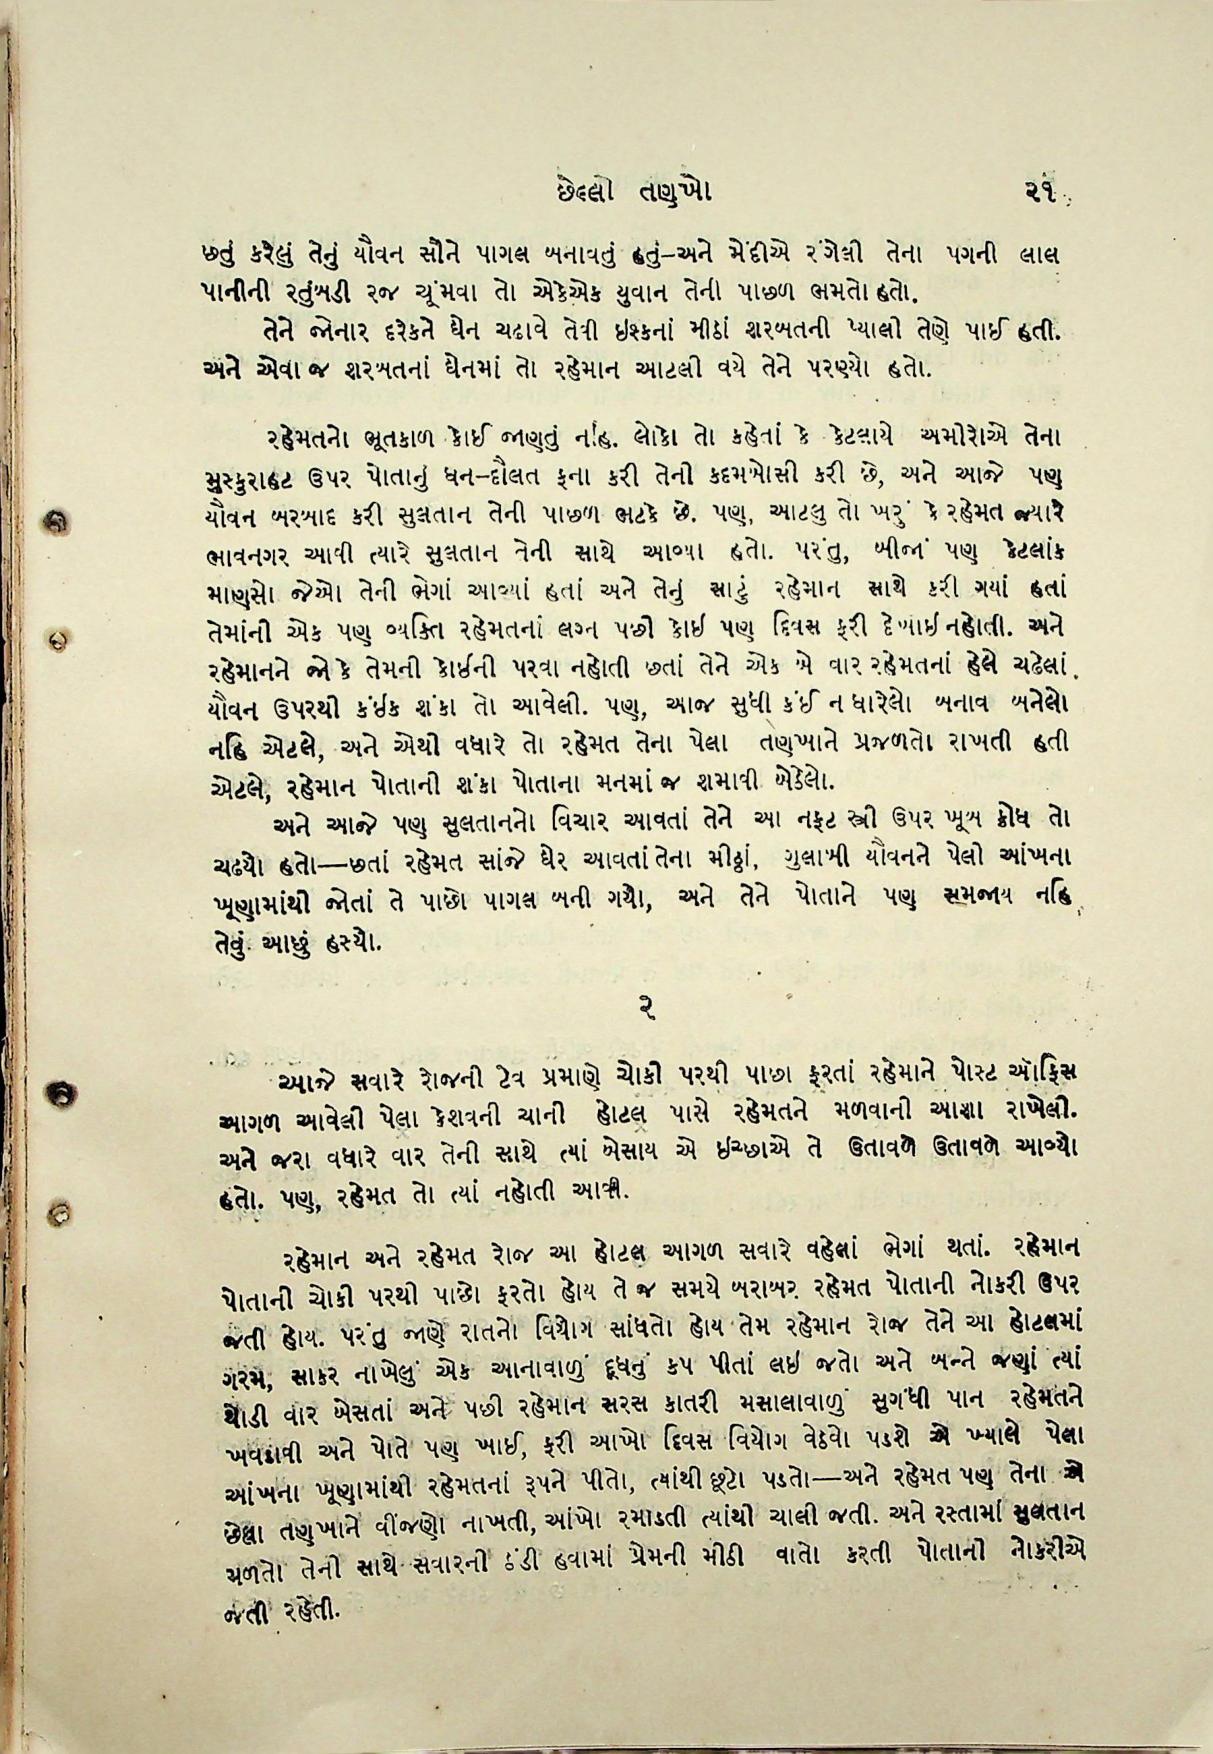 છેલ્લો તણખો ૨૧
છતું કરેલું તેનું યૌવન સૌને પાગલ બનાવતું હતું–અને મેંદીએ રંગેલી તેના પગની લાલ
પાનીની રતુંબડી રજ ચૂંમવા તો એકેએક યુવાન તેની પાછળ ભમતો હતો.
તેને જોનાર દરેકને ઘેન ચઢાવે તેવી ઇશ્કનાં મીઠાં શરબતની પ્યાલી તેણે પાઈ હતી.
અને એવા જ શરબતનાં ઘેનમાં તો રહેમાન આટલી વયે તેને પરણ્યો હતો.
રહેમતનો ભૂતકાળ કોઈ જાણતું નહિ. લોકો તો કહેતાં કે કેટલાયે અમીરોએ તેના
મુસ્કુરાહટ ઉપર પોતાનું ધન–દૌલત ફના કરી તેની કદમબોસી કરી છે, અને આજે પણ
યૌવન બરબાદ કરી સુલતાન તેની પાછળ ભટકે છે. પણ, આટલુ તો ખરું કે રહેમત જ્યારે
ભાવનગર આવી ત્યારે સુલતાન તેની સાથે આવ્યા હતો. પરંતુ, બીજાં પણ કેટલાંક
માણસો જેઓ તેની ભેગાં આવ્યાં હતાં અને તેનું સાટું રહેમાન સાથે કરી ગયાં હતાં
તેમાંની એક પણ વ્યક્તિ રહેમતનાં લગ્ન પછી કોઇ પણ દિવસ ફરી દેખાઇ નહોતી. અને
રહેમાનને જો કે તેમની કોઈની પરવા નહોતી છતાં તેને એક બે વાર રહેમતનાં હેલે ચઢેલાં
યૌવન ઉપરથી કંઇક શંકા તો આવેલી. પણ, આજ સુધી કંઈ ન ધારેલો બનાવ બનેલો
નહિ એટલે, અને એથી વધારે તો રહેમત તેના પેલા તણખાને પ્રજળતો રાખતી હતી
એટલે, રહેમાન પોતાની શંકા પોતાના મનમાં જ શમાવી બેઠેલો.
અને આજે પણ સુલતાનનો વિચાર આવતાં તેને આ નફટ સ્ત્રી ઉપર ખૂબ ક્રોધ તો
ચઢ્યો હતો—છતાં રહેમત સાંજે ઘેર આવતાં તેના મીઠ્ઠાં, ગુલાબી યૌવનને પેલી આંખના
ખૂણામાંથી જોતાં તે પાછો પાગલ બની ગયો, અને તેને પોતાને પણ સમજાય નહિ
તેવું આછું હસ્યો.
૨
આજે સવારે રોજની ટેવ પ્રમાણે ચોકી પરથી પાછા ફરતાં રહેમાને પોસ્ટ ઑફિસ
આગળ આવેલી પેલા કેશવની ચાની હોટલ પાસે રહેમતને મળવાની આશા રાખેલી.
અને જરા વધારે વાર તેની સાથે ત્યાં બેસાય એ ઇચ્છાએ તે ઉતાવળે ઉતાવળે આવ્યો
હતો. પણ, રહેમત તો ત્યાં નહોતી આવી.
રહેમાન અને રહેમત રોજ આ હોટલ આગળ સવારે વહેલાં ભેગાં થતાં. રહેમાન
પોતાની ચોકી પરથી પાછો ફરતો હોય તે જ સમયે બરાબર રહેમત પોતાની નોકરી ઉપર
જતી હોય. પરંતુ જાણે રાતનો વિયોગ સાંધતો હોય તેમ રહેમાન રોજ તેને આ હોટલમાં
ગરમ, સાકર નાખેલું એક આનાવાળું દૂધનું કપ પીતાં લઇ જતો અને બન્ને જણાં ત્યાં
થોડી વાર બેસતાં અને પછી રહેમાન સરસ કાતરી મસાલાવાળું સુગંધી પાન રહેમતને
ખવડાવી અને પોતે પણ ખાઈ, ફરી આખો દિવસ વિયોગ વેઠવો પડશે એ ખ્યાલે પેલા
આંખના ખૂણામાંથી રહેમતનાં રૂપને પીતો, ત્યાંથી છૂટો પડતો—અને રહેમત પણ તેના એ
છેલ્લા તણખાને વીંજણો નાખતી, આંખો રમાડતી ત્યાંથી ચાલી જતી. અને રસ્તામાં સુલતાન
મળતો તેની સાથે સવારની ઠંડી હવામાં પ્રેમની મીઠી વાતો કરતી પોતાની નોકરીએ
જતી રહેતી.